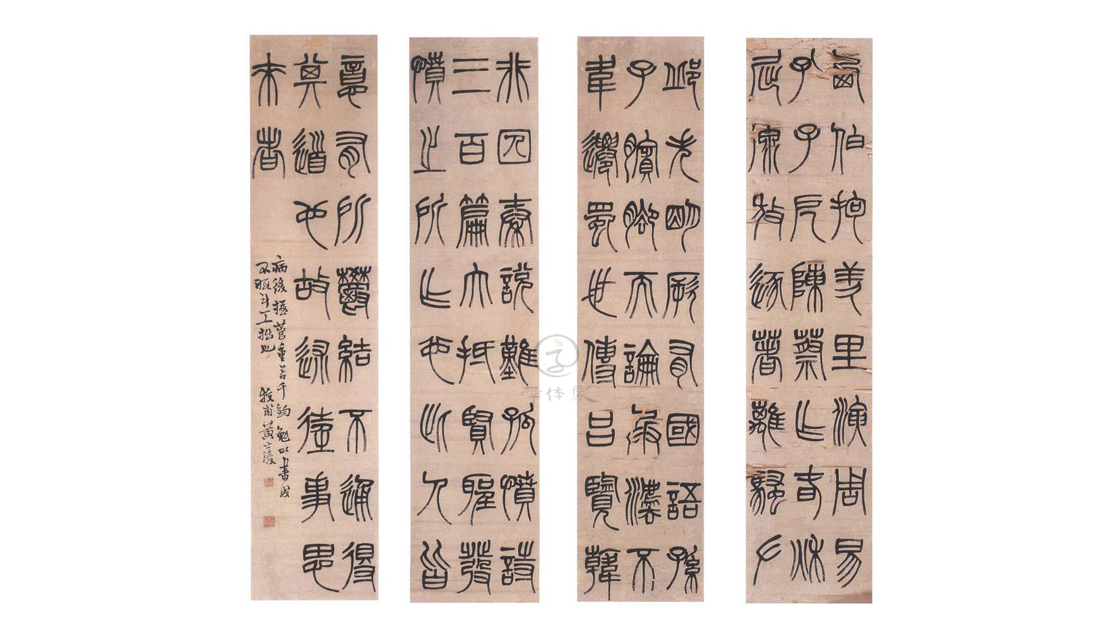 西伯拘羑里演周易
孔子戹陳蔡作春秋
屈原放逐著離騷左
邱失明厥有國語孫
子臏腳而論兵法不
韋遷蜀世傳呂覽韓
非囚秦說難孤憤詩
三百篇大抵賢聖發
憤之所作也此人皆
意有所鬱結不通得
其道也故述往事思
來者
病後搦管重若千鈞勉以書成
不複計工拙也 牧甫黃士陵
字体家